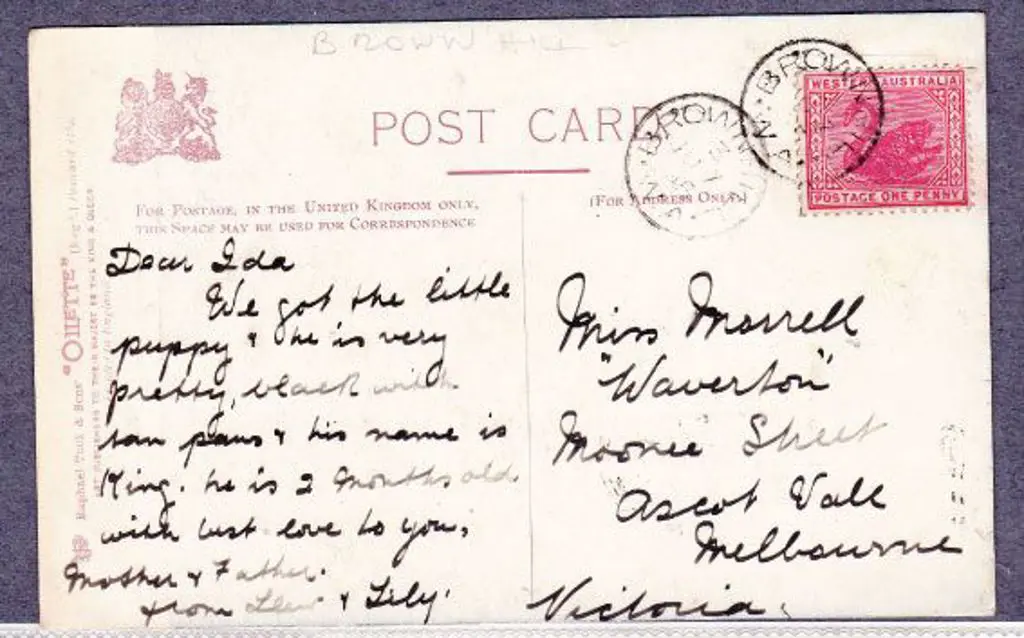 BROWN HILL
POST CARD
WESTERN AUSTRALIA
POSTAGE ONE PENNY
BROWN
W.A
BROWN
FOR POSTAGE, IN THE UNITED KINGDOM ONLY,
THIS SPACE MAY BE USED FOR CORRESPONDENCE
(FOR ADDRESS ONLY)
Raphael Tuck & Sons' "OILETTE"
ART PUBLISHERS TO THEIR MAJESTIES THE KING & QUEEN
Dear Ida
We got the little
puppy & he is very
pretty, black with
tan paws & his name is
King. he is 2 months old
with best love to you,
Mother & Father.
from & Lily.
Miss Morrell
"Waverton"
Moonee Street
Ascot Vale
Melbourne
Victoria